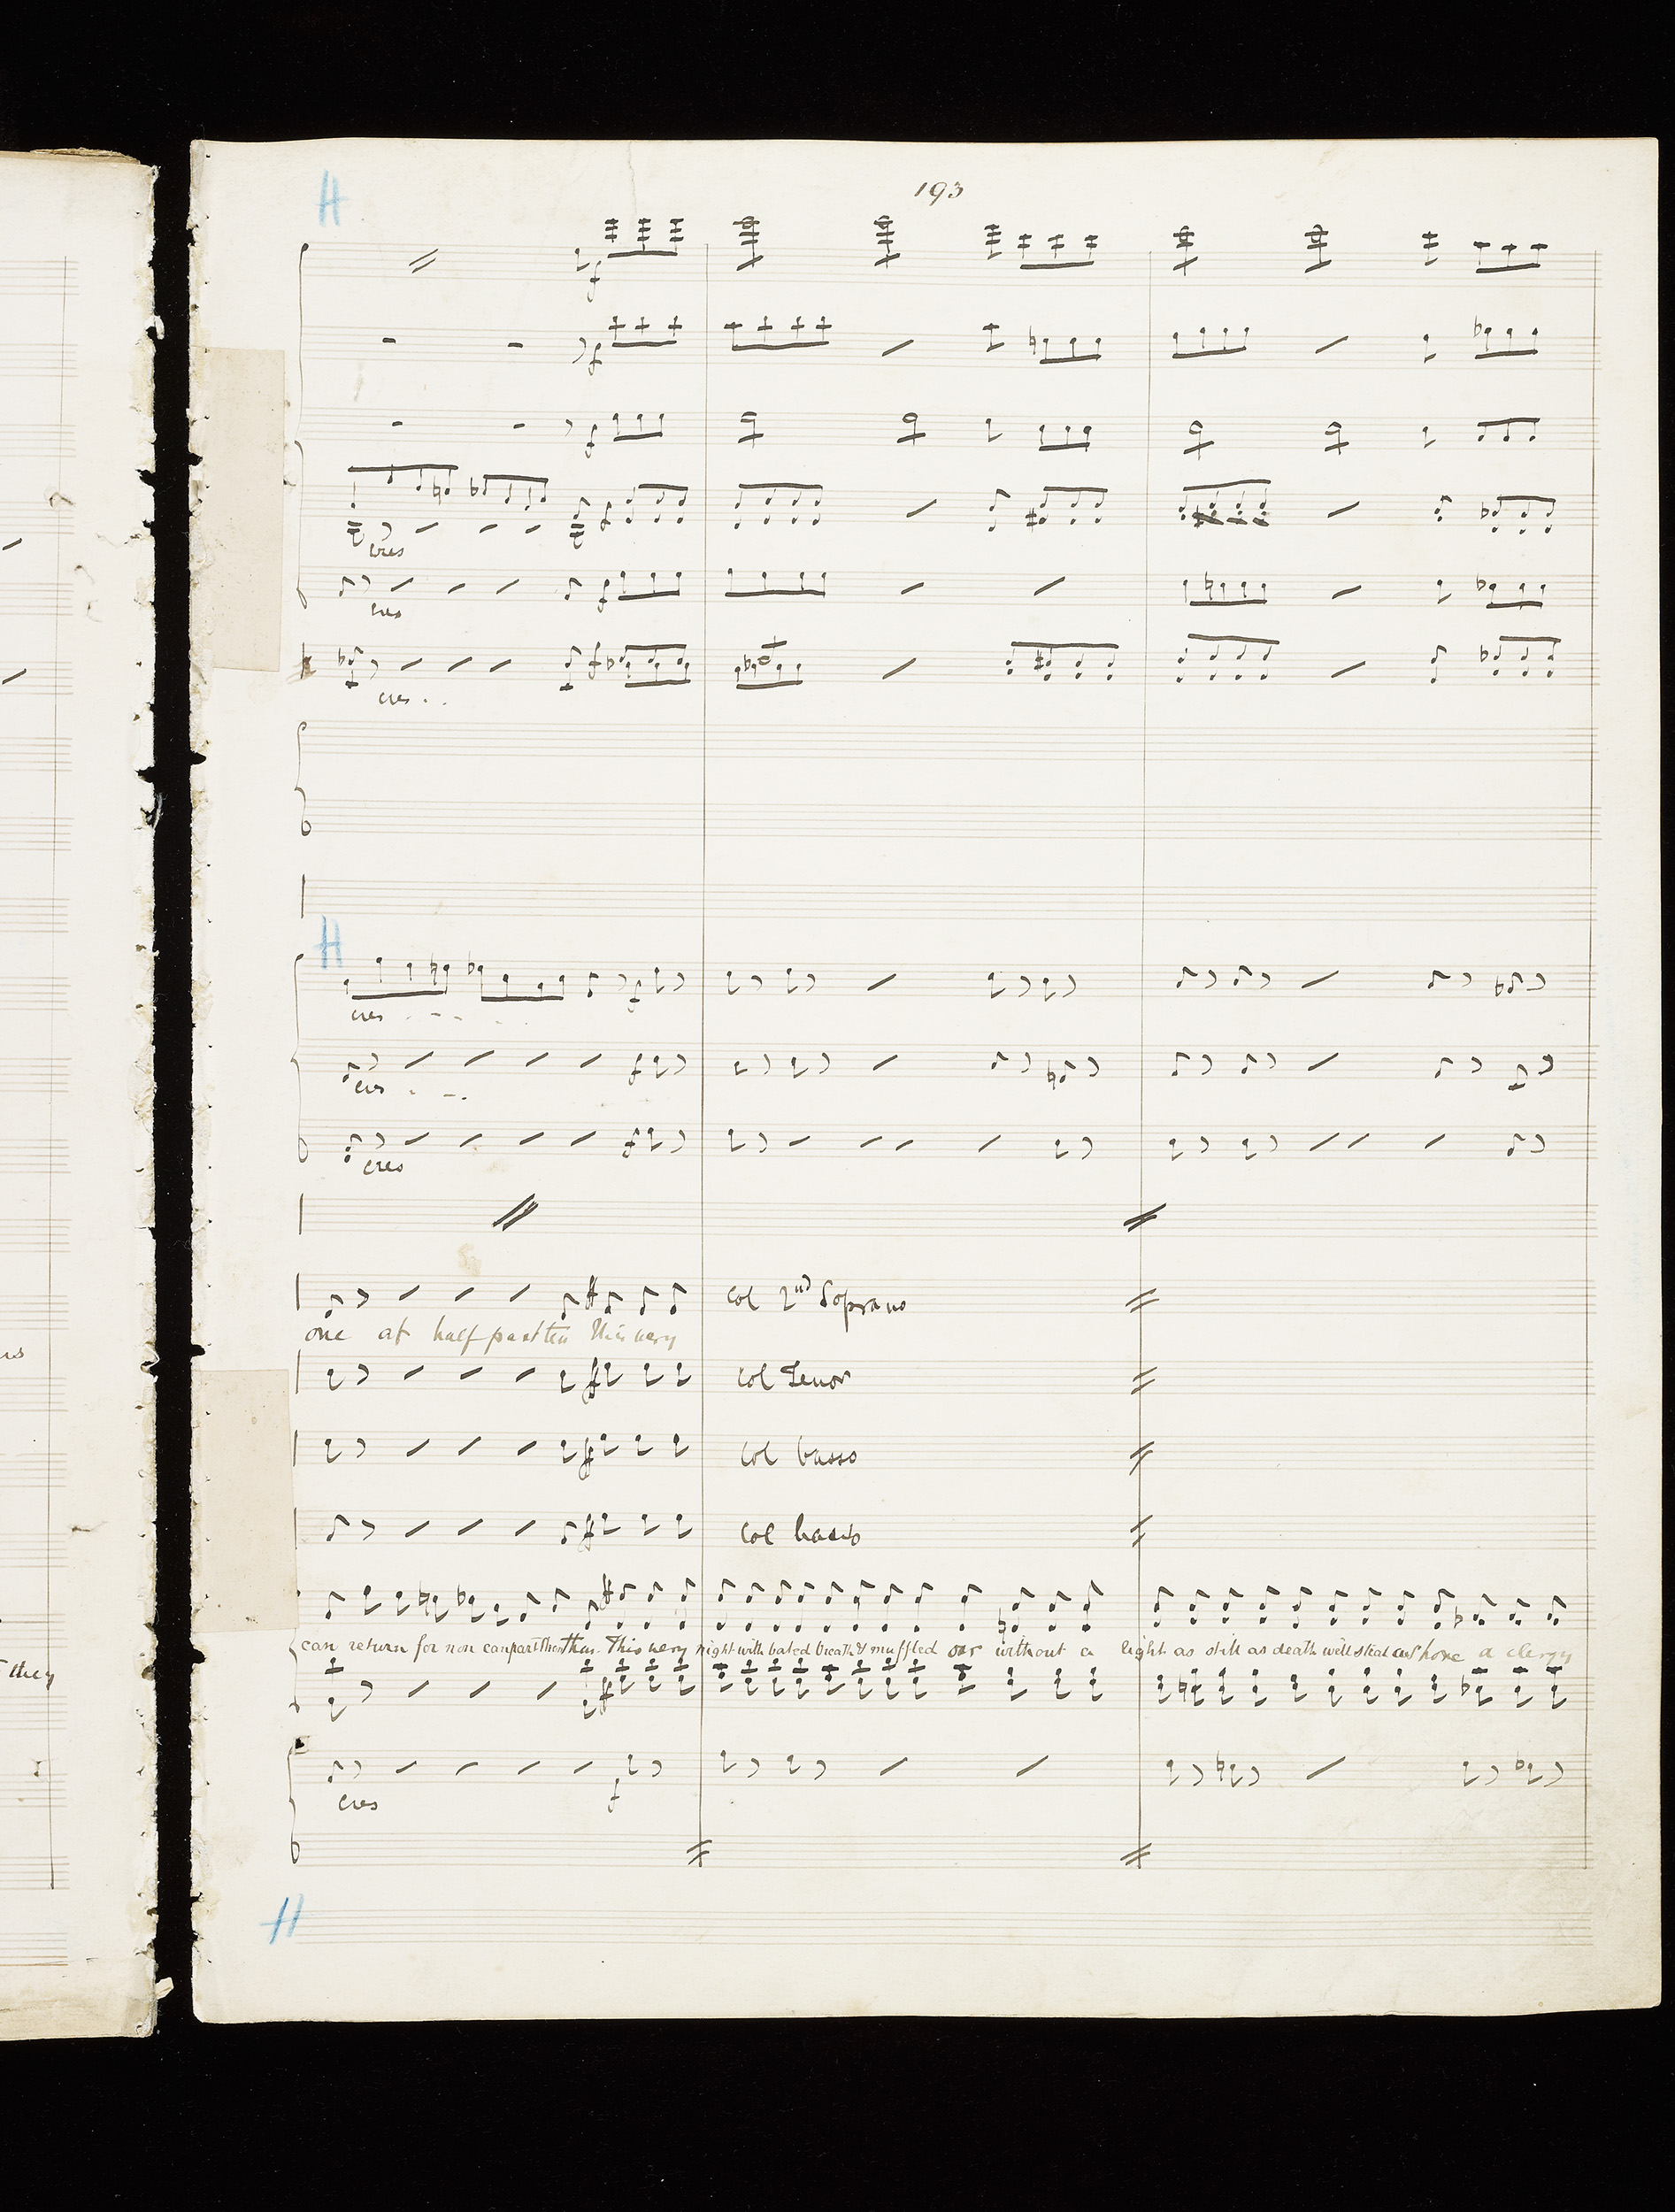 193
H
f
f
f
f
cres
f
cres
f
cres . .
H
f
cres . - - .
f
cres . - - .
f
cres
Col 2nd Soprano
f
one at half past ten this very
Col Tenor
f
Col basso
f
Col basso
f
f
can return for non can part them thus. This very night with bated breath & muffled oar without a light as still as death we'll steal ashore a clergy
f
f
cres
H
they